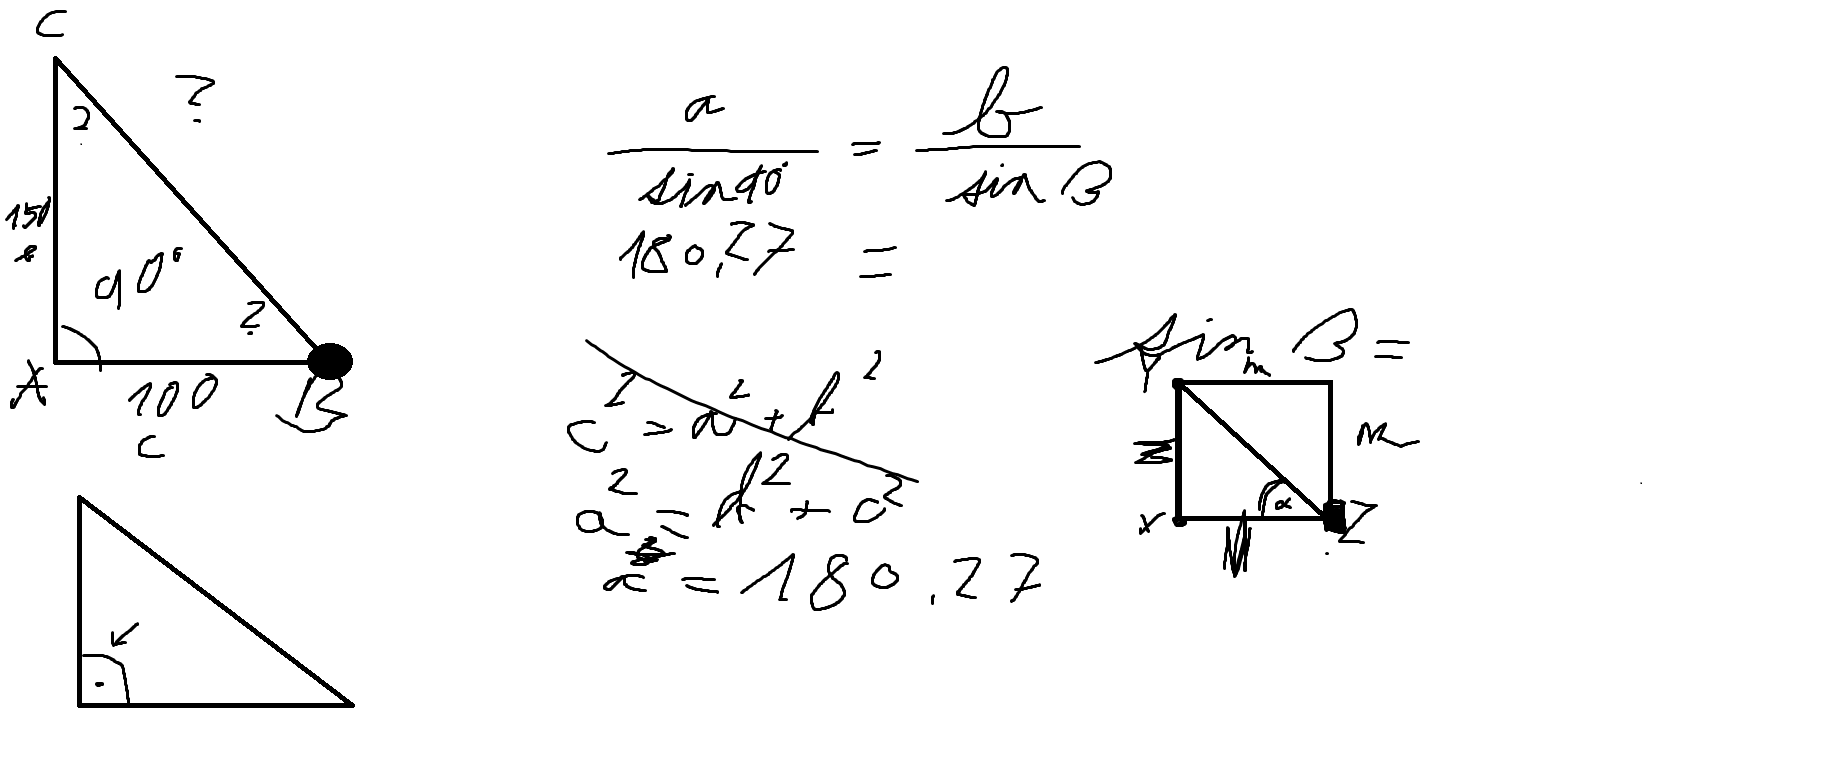 C
?
2
150
90°
?
A
100
B
C
a / sin90° = b / sin B
180.27 =
c² = a² + b²
a² = b² + c²
a = 180.27
sin B =
Y
m
m
x
α
Z